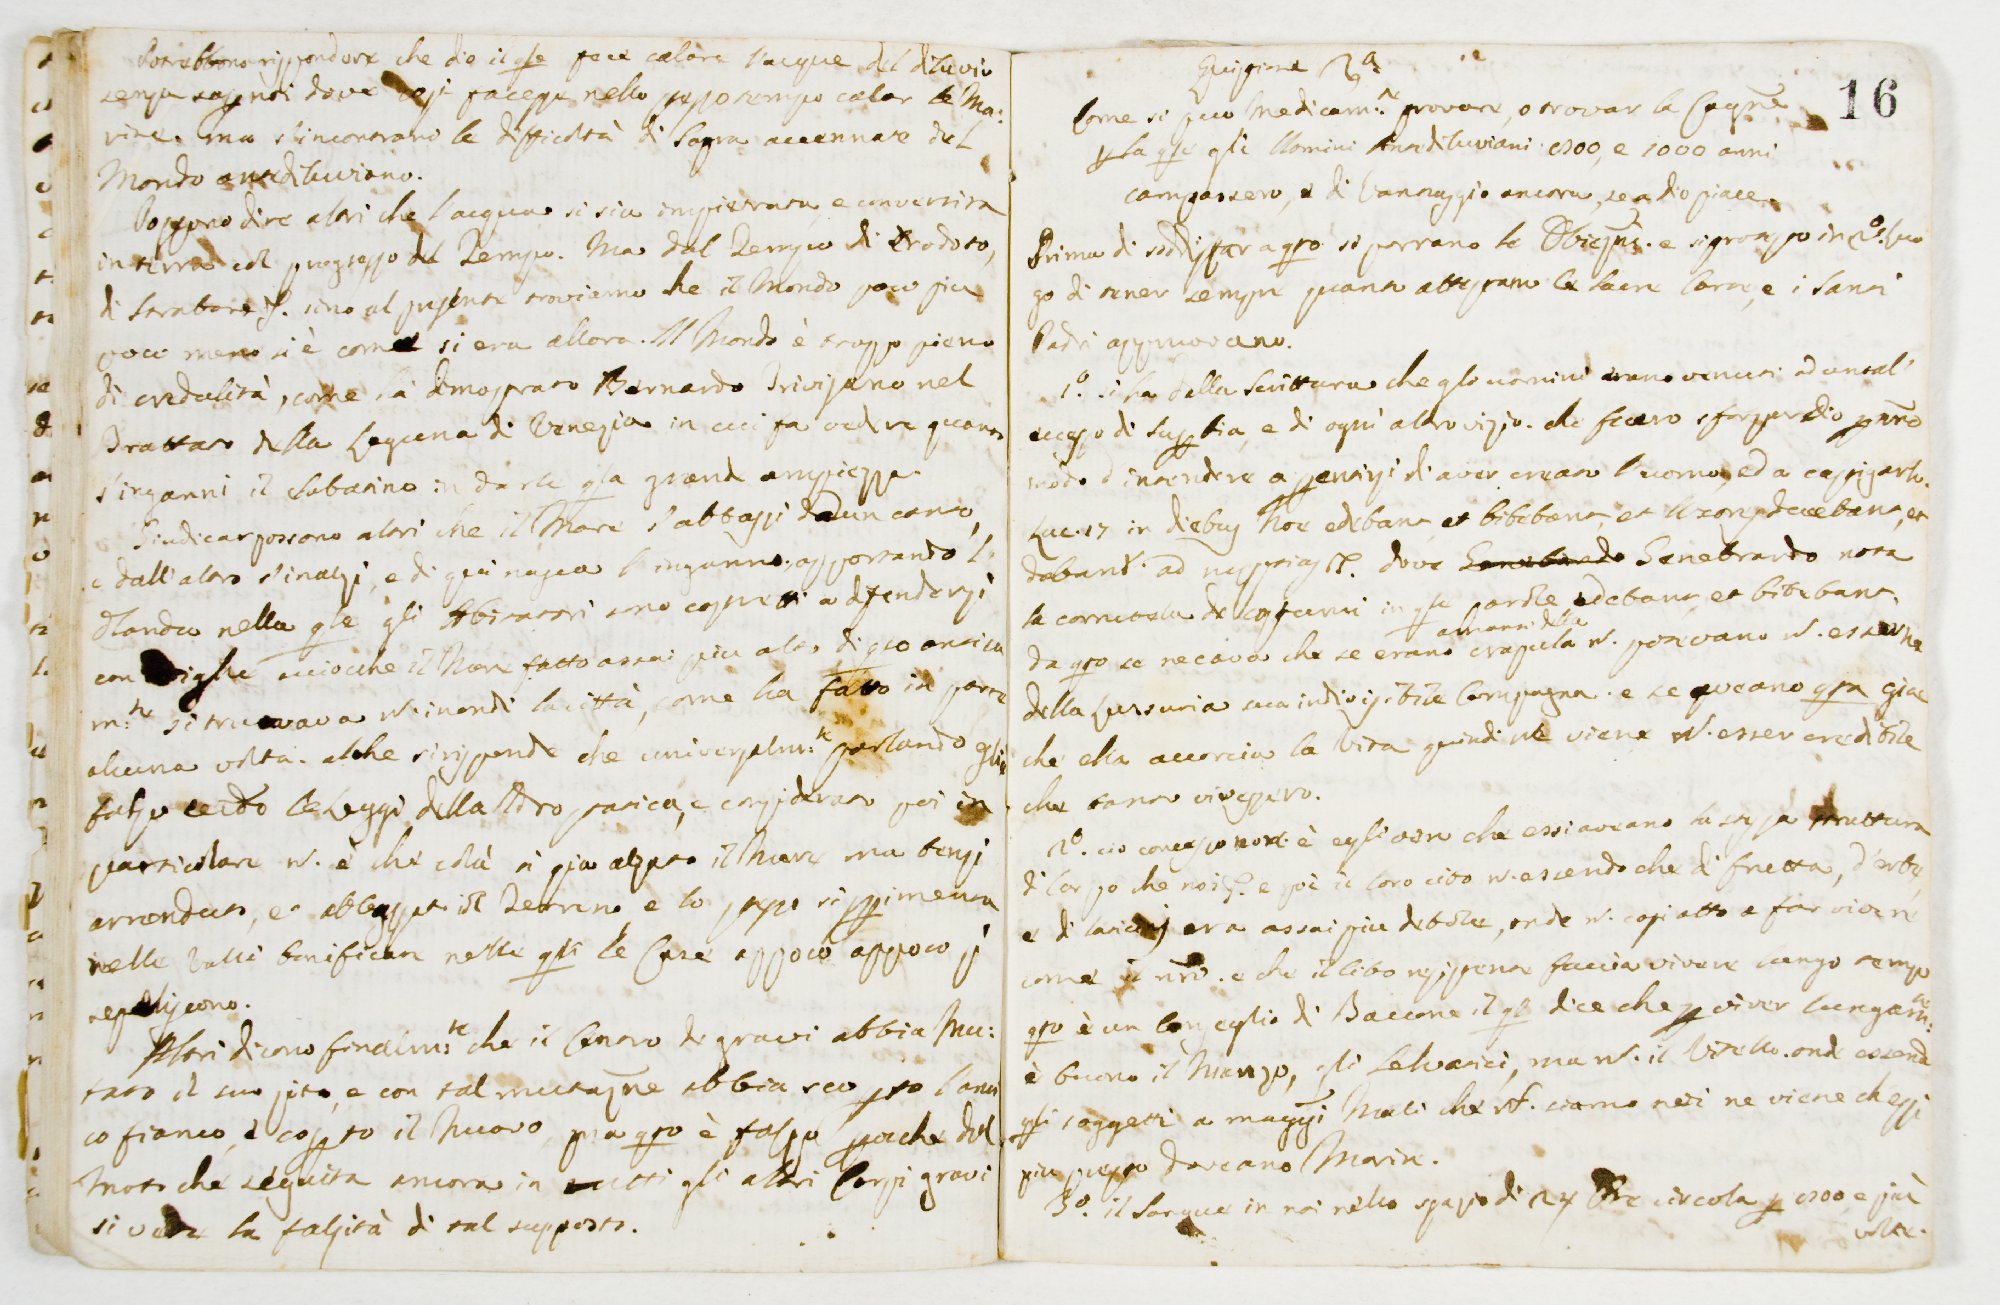 Potrebbono rispondere che dio il qle fece calare l'acque del diluvio
senza saper noi dove così facesse nello stesso tempo calar le Ma:
rine. ma s'incontrano le difficoltà di sopra accennate del
Mondo antidiluviano.
Possono dire altri che l'acqua si sia impietrata, e convertita
in terra col progresso del Tempo. Ma dal Tempo di Erodoto,
di Strabone sino al presente troviamo che il Mondo poco più
poco meno si è come si era allora. Il Mondo è troppo pieno
di credulità, come hà dimostrato Bernardo Trivisano nel
Trattato della Laguna di Venezia in cui fa vedere quanto
s'inganni il Sabatino in darle qla grand' ampiezza.
Giudicar possono altri che il Mare s'abbassi da un canto,
e dall'altro s'inalzi, e di qui nasca l'inganno. apportando l'
Olanda nella qle gli Abitatori sono costretti a difendersi
con Dighe acciocche il Mare fatto assai più alto di qto antica
m:te si trovava n. inondi la città, come ha fatto in parte
alcuna volta. al che si risponde che universalm:te parlando egli è
falso le Leggi della Idrostatica, e considerato poi in
particolare n. è che colà si sia alzato il Mare ma bensì
arrenduto, et abbassato il Terreno, e lo stesso si sperimenta
nelle Valli bonificate nelle qli le Case appoco appoco si
sepeliscono.
Altri dicono finalm:te che il Centro de gravi abbia Mu:
tato il suo sito, e con tal mutazne abbia scoperto l'anti
co fianco, e coperto il Nuovo, ma qto è falso perche dal
Moto che seguita ancora in tutti gli altri Corpi gravi
si vede la falsità di tal supposto.
16
Quistione 2a
Come si può Medicam:te provare, o trovar la Cagne
per la qle gli Uomini Antidiluviani 900, e 1000 anni
campassero, e di vantaggio ancora, se a dio piace.
Prima di soddisfar a qto si porrano le Obiezni. e si protesto in 2o luo
go di tener sempre quanto attestano le Sacre Carte, e i Santi
Padri approvarono.
1o. si ha dalla Scrittura che gli uomini erano venuti ad un tal'
eccesso di Superbia, e di ogni altro vizio. che fecero sforzar dio per nro
modo d'intendere a pentirsi di aver creato l'uomo, ed a castigarlo.
Luc. 17 in diebus Noe edebant et bibebant, et Uxores ducebant, et
dabant. ad nuptias. dove Genebrardo nota
la corruttela de costumi in qle parole, edebant et bibebant.
amanti della
da qto se ne cava che se erano crapula n. potevano n. esserne
della Lussuria sua indivisibile Compagna. e se aveano qta già
che ella accorcia la Vita quindi ne viene n. esser credibile
che tanto vivessero.
2o. ciò concesso non è egli vero che essi aveano la stessa struttura
di Corpo che noi. e poi il loro cibo n. essendo che di frutta, d'erbe,
e di laticinj era assai più debole, onde n. così atto a far vivere
come il nro. e che il cibo resistente faccia vivere lungo tempo
qto è un Consiglio di Baccone il qle dice che per viver lungam:te
è buono il Manzo, gli Selvatici, ma n. il Vitello. onde essendo
qsti soggetti a maggri Mali che n. siamo noi ne viene ch'essi
più presto doveano Morire.
3o. il Sangue in noi nello spazio di 24 Ore circola per 900 e più
volte.